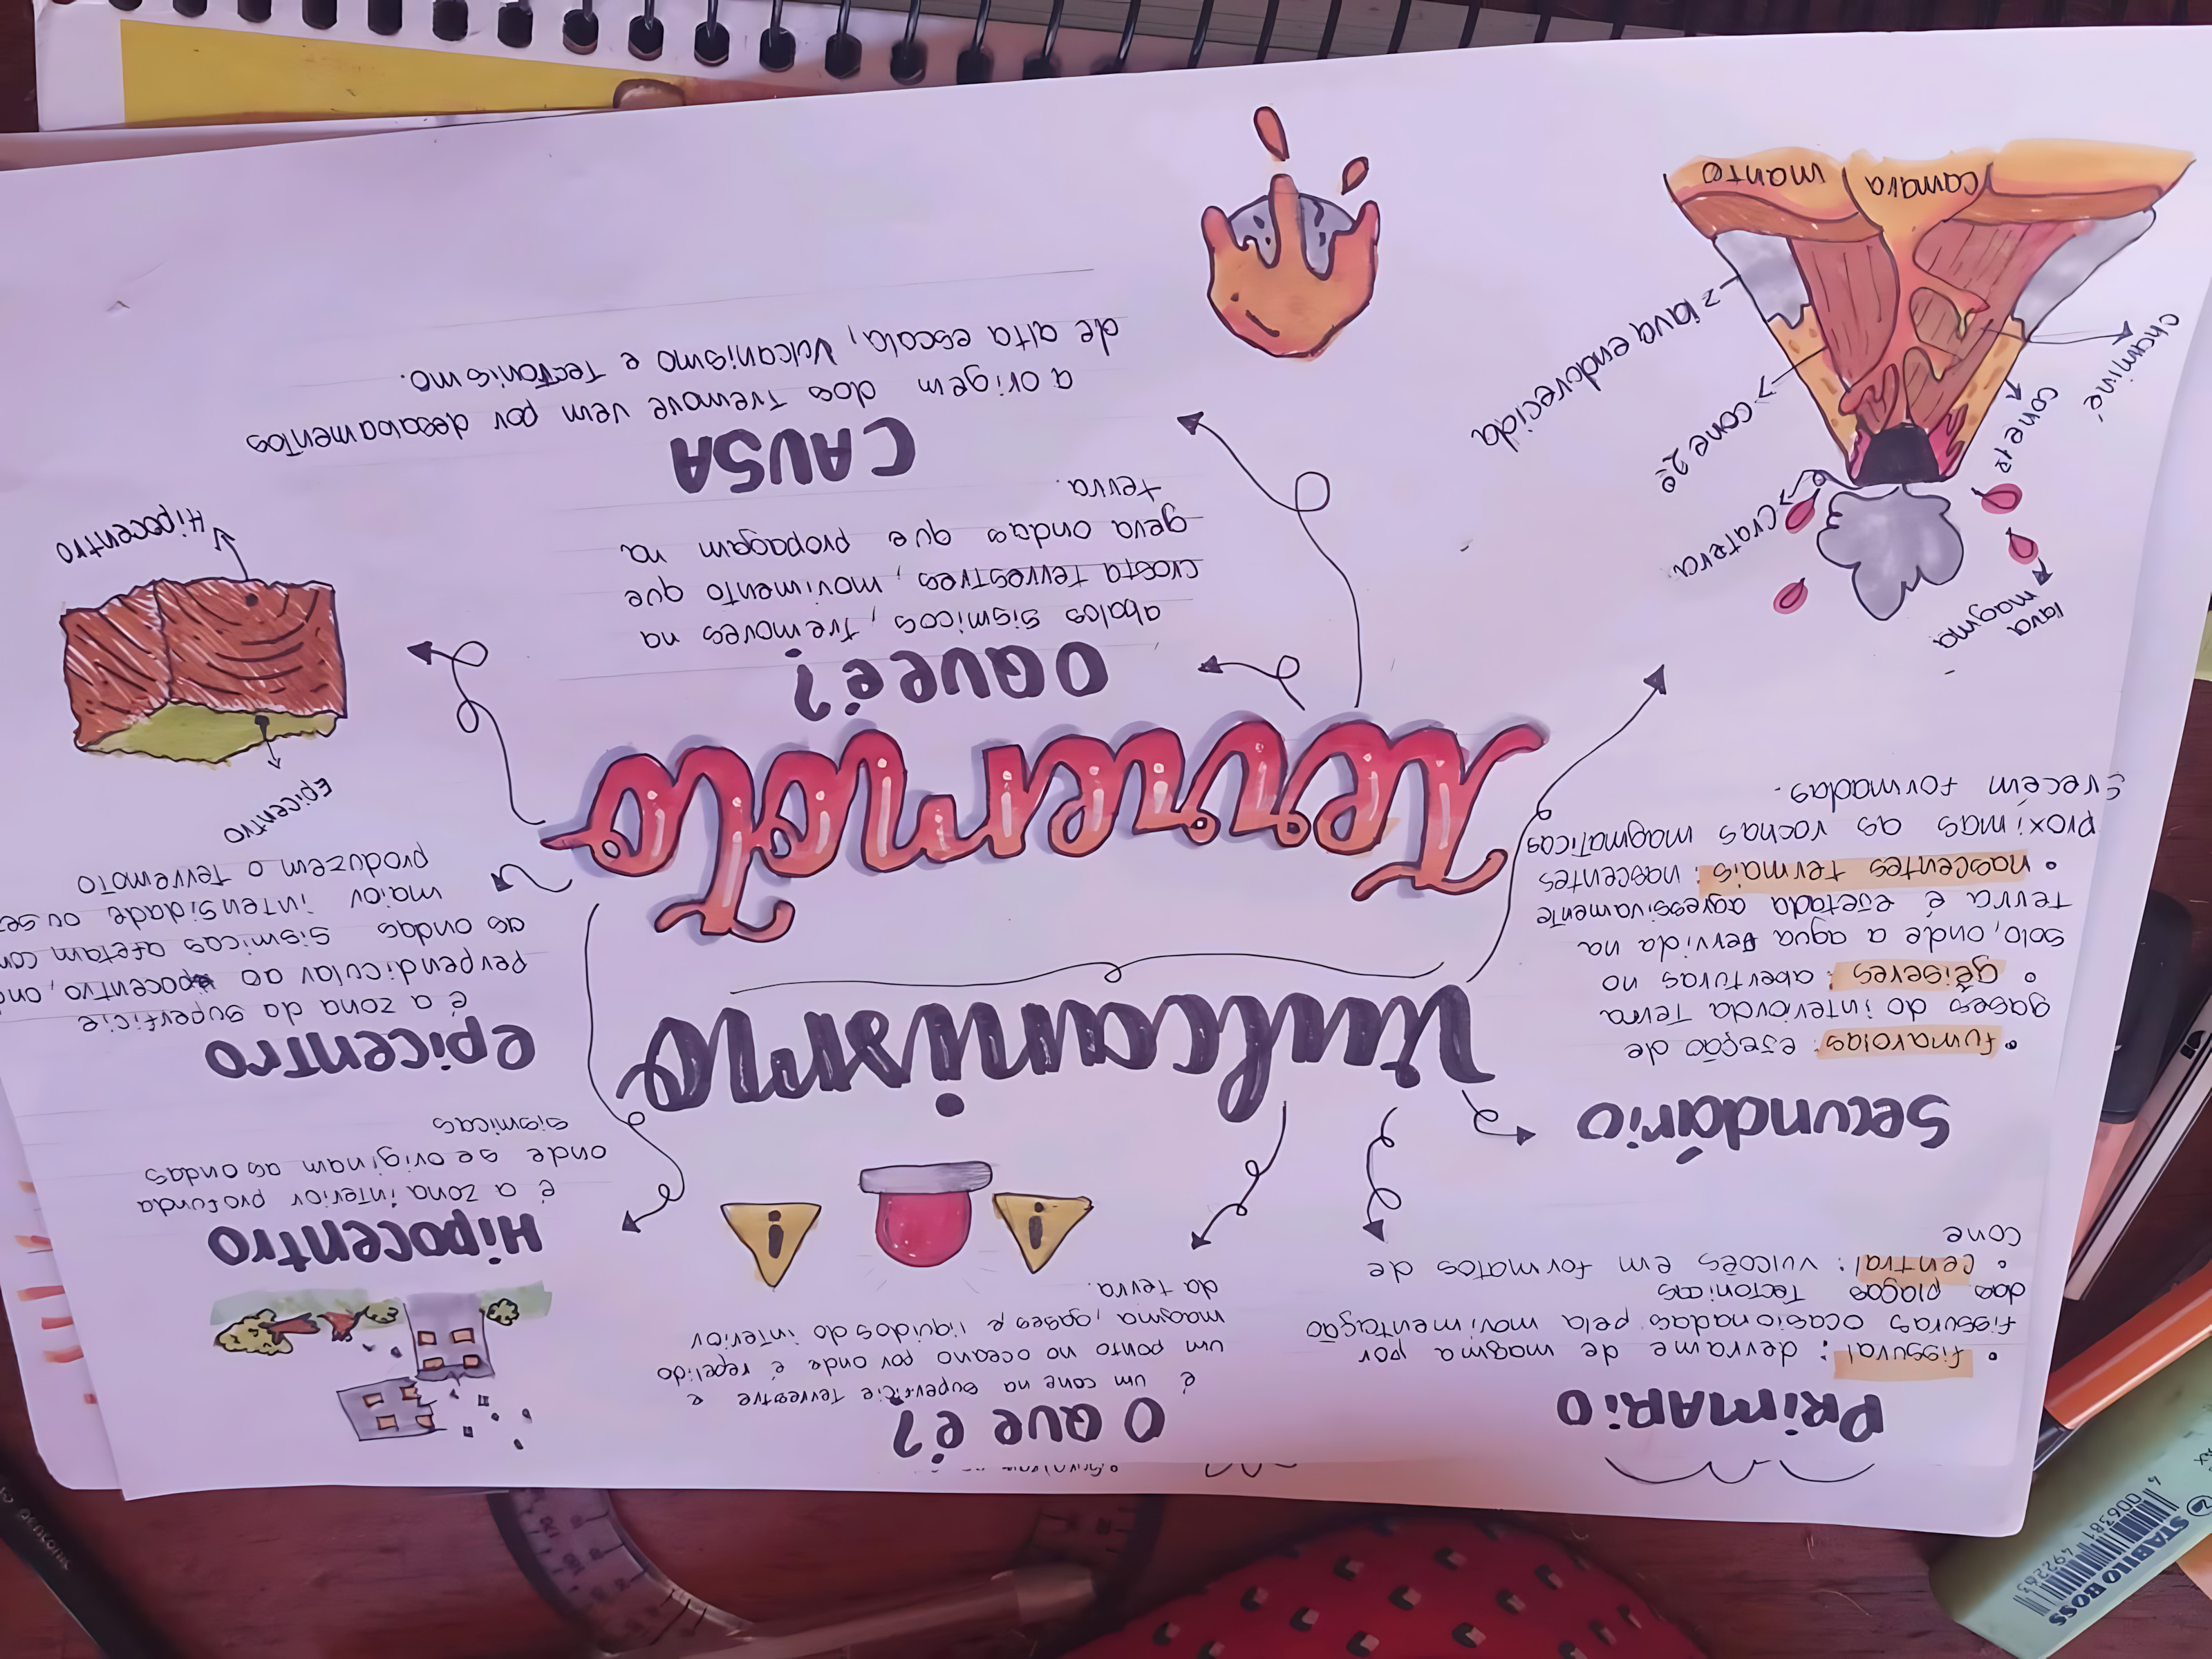 PRIMARIO
• fissural: derrame de magma por
fissuras ocasionadas pela movimentação
das placas Tectonicas
• central: vulcões em formatos de
cone
Secundário
• fumarolas: ejeção de
gases do interior da Terra
• gêiseres: aberturas no
solo, onde a agua fervida na
terra é ejetada agressivamente
• nascentes termais: nascentes
proximas as rochas magmaticas
recém formadas.
O QUE é?
é um cone na superficie Terrestre e
um ponto no oceano por onde é repelido
magma, gases e liquidos do interior
da terra.
i
i
Vulcanismo
Hipocentro
é a zona interior profunda
onde se originam as ondas
sismicas
epicentro
é a zona da superficie
Perpendicular ao pocentro, on
as ondas sismicas afetam com
maior intensidade ou se
produzem o Terremoto
Terremoto
O QUE é?
abalos sismicos, tremores na
crosta terrestres, movimento que
gera ondas que propagam na
terra.
CAUSA
a origem dos Tremore vem por desabamentos
de alta escala, Vulcanismo e Tectonismo.
Epicentro
Hipocentro
lava
magma
cratera
cone 1º
cone 2º
chaminé
lava endurecida
camara
manto
STABILO BOSS
4 006381 492263